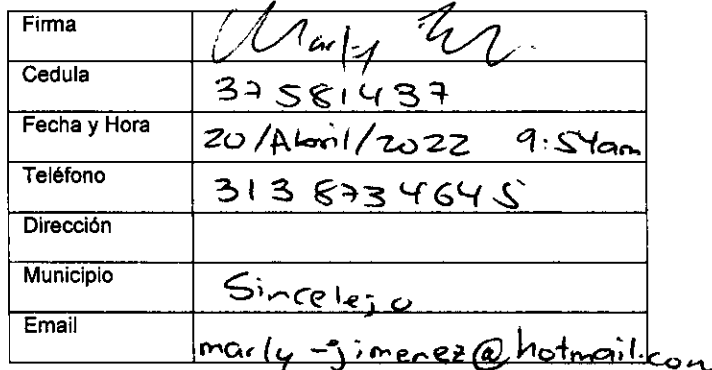 Firma Marly
Cedula 37581437
Fecha y Hora 20/Abril/2022 9:54am
Teléfono 3138734645
Dirección
Municipio Sincelejo
Email marly-jimenez@hotmail.com